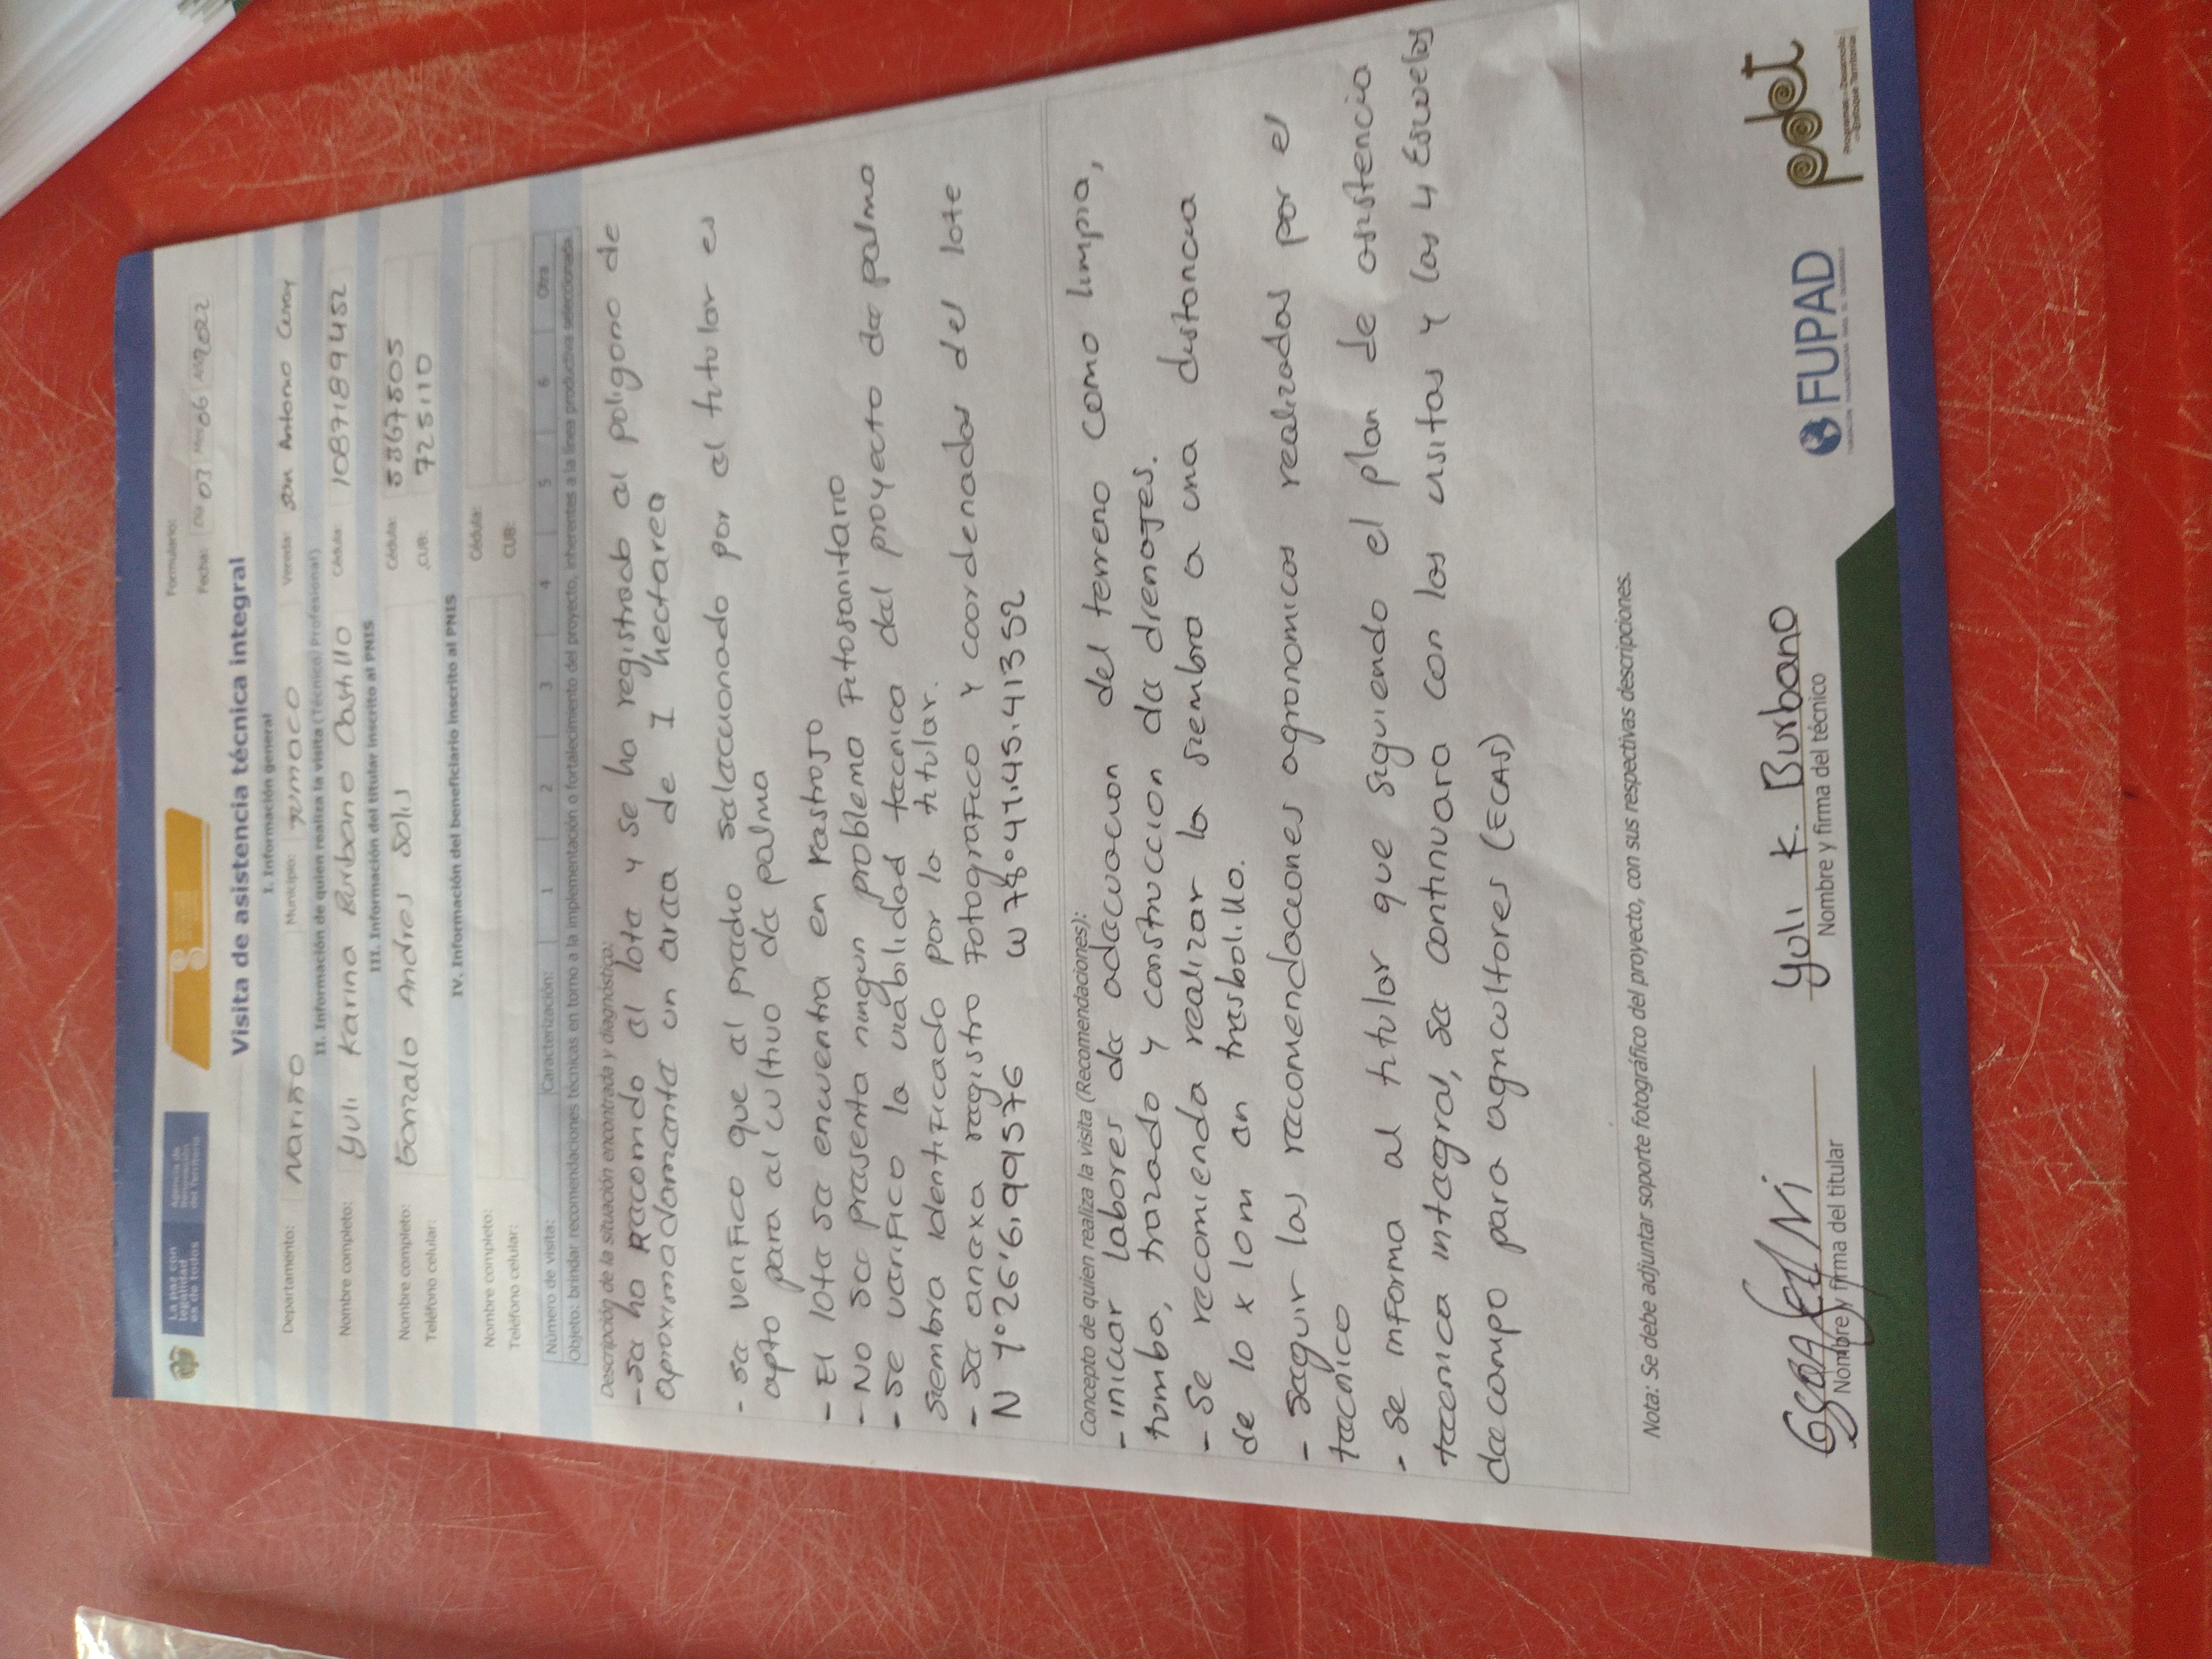 La paz con
legalidad
es de todos
Agencia de
Renovación
del Territorio
Formulario:
Fecha: Día 03 Mes 06 Año 2022
Visita de asistencia técnica integral
I. Información general
Departamento: Nariño Municipio: Tumaco Vereda: San Antonio
II. Información de quien realiza la visita (Técnico/Profesional)
Nombre completo: Yuli Karina Burbano Castillo Cédula: 1087189452
III. Información del titular inscrito al PNIS
Nombre completo: Gonzalo Andres Solis Cédula: 5367505
Teléfono celular: CUB: 725110
IV. Información del beneficiario inscrito al PNIS
Nombre completo: Cédula:
Teléfono celular: CUB:
Número de visita: Caracterización: 1 2 3 4 5 6 Otra
Objeto: brindar recomendaciones técnicas en torno a la implementación o fortalecimiento del proyecto, inherentes a la línea productiva seleccionada
Descripción de la situación encontrada y diagnóstico:
- Se ha Racorrido el lote y se ha registrado el poligono de
aproximadamente un area de 1 hectarea
- Se verifico que el predio selaccionado por el titular es
apto para el cultivo de palma
- El lote se encuentra en rastrojo
- No se presenta ningun problema Fitosanitario
- Se verifico la viabilidad tecnica del proyecto de palma
siembra identificado por lo titular.
- Se anexa registro Fotografico y coordenadas del lote
N 1°26'6,9915376 W 78°41'45,41352
Concepto de quien realiza la visita (Recomendaciones):
- Iniciar labores de adecuacion del terreno como limpia,
tumba, trazado y construccion de drenajes.
- Se recomienda realizar la siembra a una distancia
de 10 x 10m en tresbolillo.
- Seguir las recomendaciones agronomicas realizadas por el
tecnico
- Se informa al titular que siguiendo el plan de asistencia
tecnica integral, se continuara con las visitas y las 4 Escuelas
de campo para agricultores (ECAS)
Nota: Se debe adjuntar soporte fotográfico del proyecto, con sus respectivas descripciones.
Nombre y firma del titular
Yuli K. Burbano
Nombre y firma del técnico
FUPAD
pdet
Programas de Desarrollo
con Enfoque Territorial